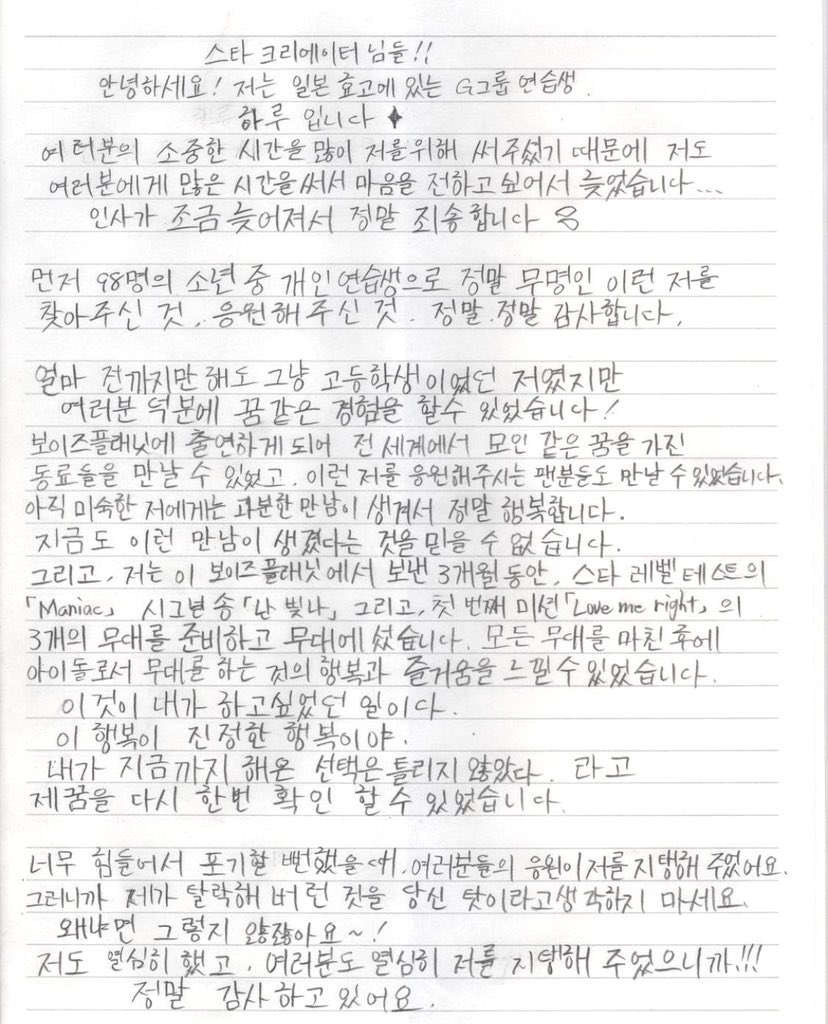 스타 크리에이터 님들!!
안녕하세요! 저는 일본 효고에 있는 G그룹 연습생.
하루 입니다 ✦
여러분의 소중한 시간을 많이 저를위해 써주셨기 때문에 저도
여러분에게 많은 시간을 써서 마음을 전하고 싶어서 늦었습니다...
인사가 조금 늦어져서 정말 죄송합니다
먼저 98명의 소년 중 개인연습생으로 정말 무명인 이런 저를
찾아주신 것, 응원해 주신 것. 정말.정말 감사합니다.
얼마 전까지만 해도 그냥 고등학생이었던 저였지만
여러분 덕분에 꿈같은 경험을 할수 있었습니다!
보이즈플래닛에 출연하게 되어 전 세계에서 모인 같은 꿈을 가진
동료들을 만날 수 있었고, 이런 저를 응원해주시는 팬분들도 만날 수 있었습니다.
아직 미숙한 저에게는 과분한 만남이 생겨서 정말 행복합니다.
지금도 이런 만남이 생겼다는 것을 믿을 수 없습니다.
그리고, 저는 이 보이즈플래닛에서 보낸 3개월 동안, 스타 레벨 테스트의
「Maniac」 시그널 송 「난 빛나」 그리고, 첫 번째 미션 「Love me right」의
3개의 무대를 준비하고 무대에 섰습니다. 모든 무대를 마친 후에
아이돌로서 무대를 하는 것의 행복과 즐거움을 느낄수 있었습니다.
이것이 내가 하고싶었던 일이다.
이 행복이 진정한 행복이야.
내가 지금까지 해온 선택은 틀리지 않았다. 라고
제꿈을 다시 한번 확인 할 수 있었습니다.
너무 힘들어서 포기할 뻔했을 때, 여러분들의 응원이 저를 지탱해 주었어요.
그러니까 제가 탈락해 버린 것을 당신 탓이라고생각하지 마세요.
왜냐면 그렇지 않잖아요~!
저도 열심히 했고, 여러분도 열심히 저를 지탱해 주었으니까!!!
정말 감사하고 있어요.